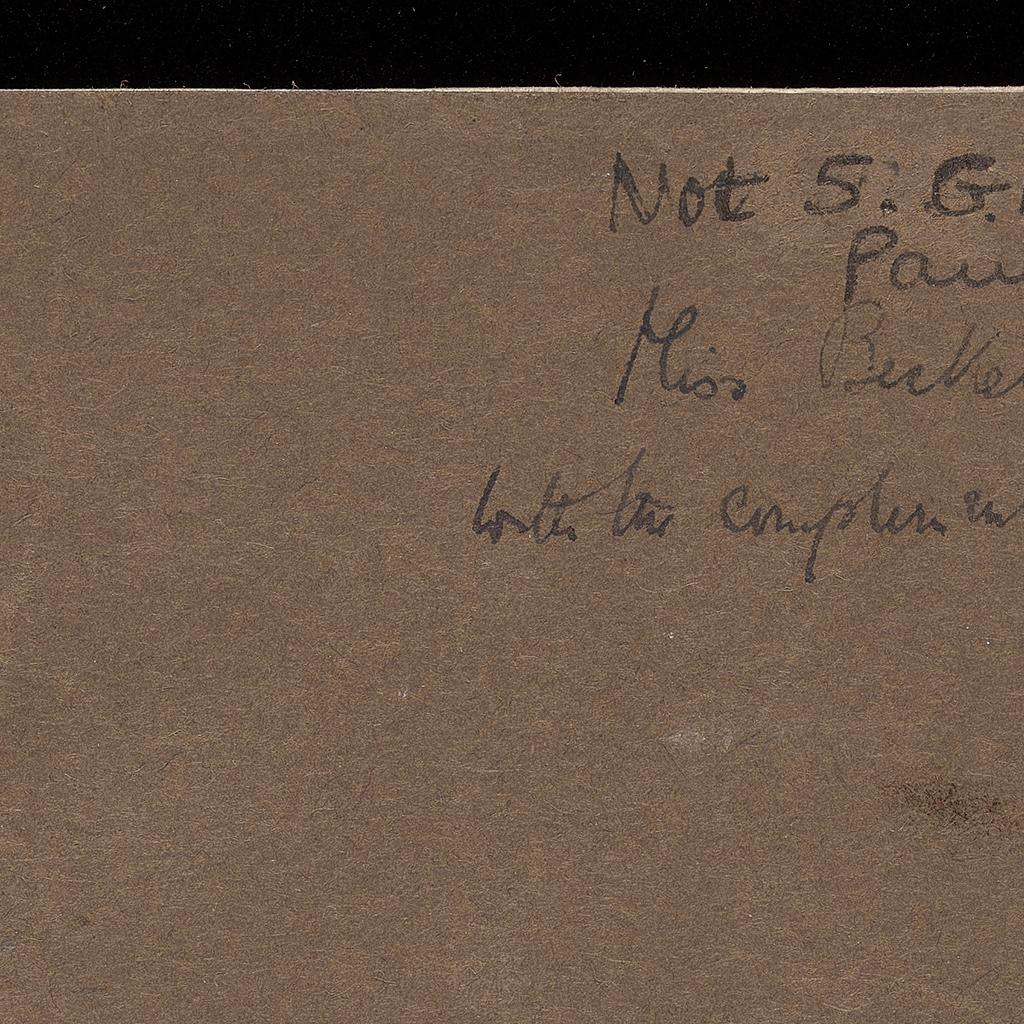 Not S. G.
Pau
Miss Becke
with the complimen